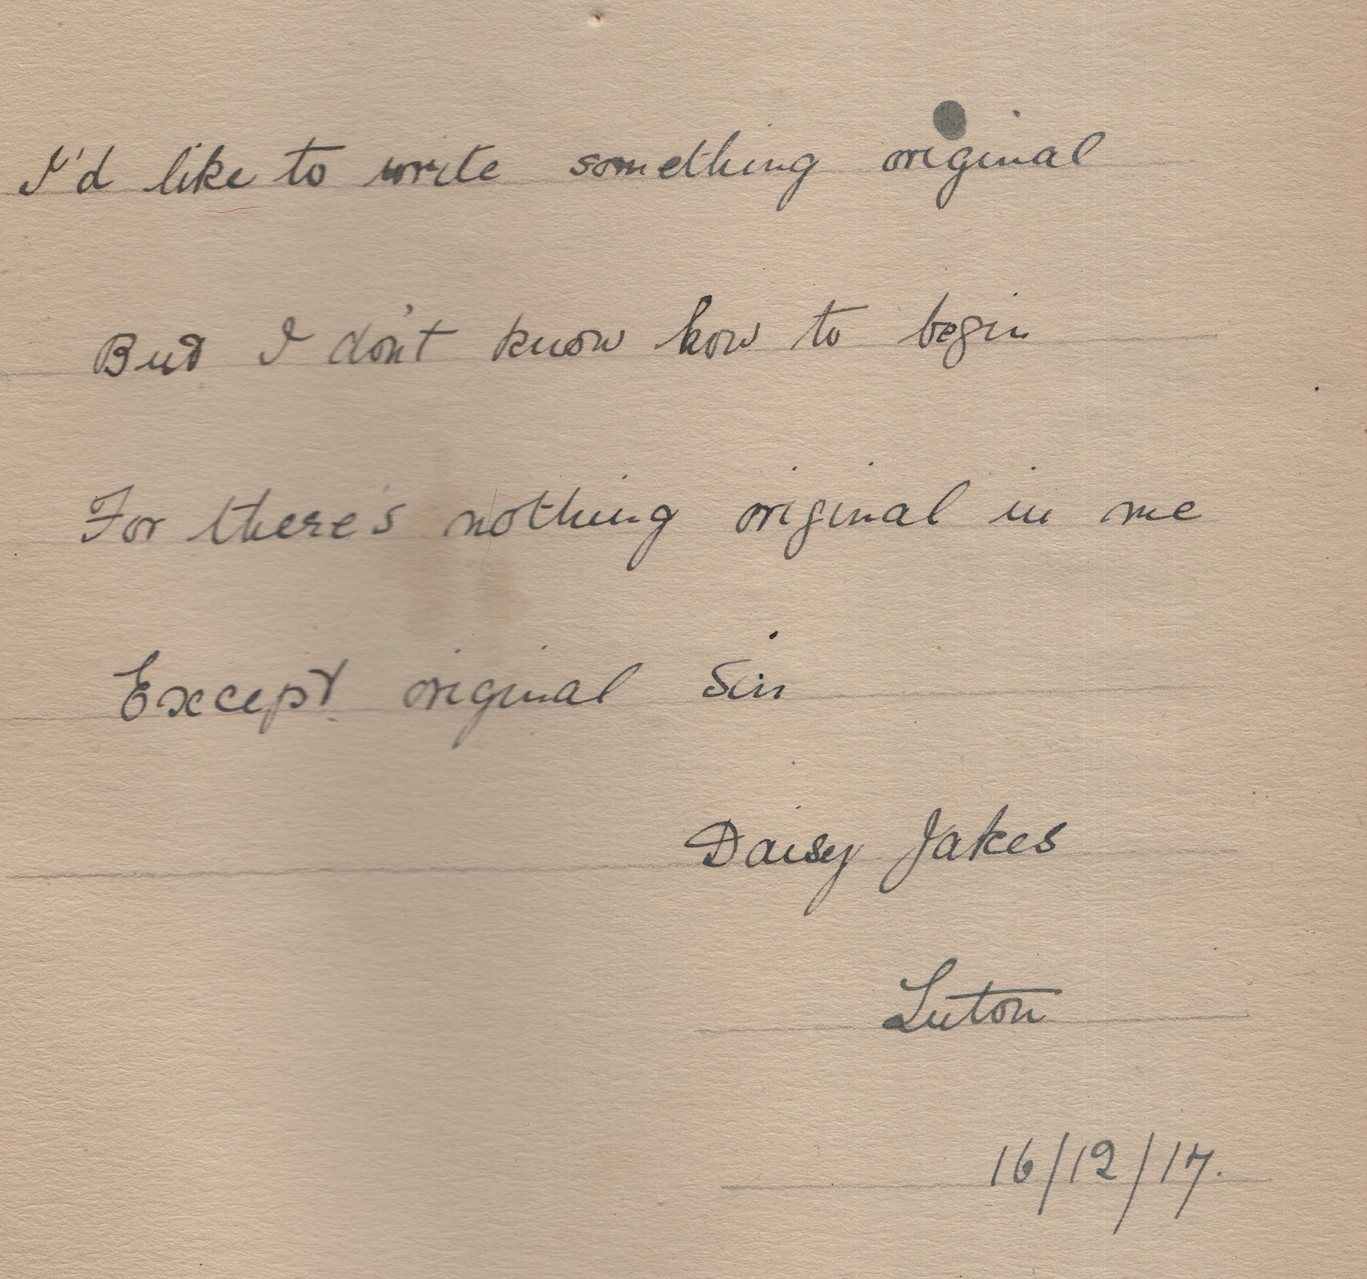 I'd like to write something original
But I don't know how to begin
For there's nothing original in me
Except original Sin
Daisy Jakes
Luton
16/12/17.